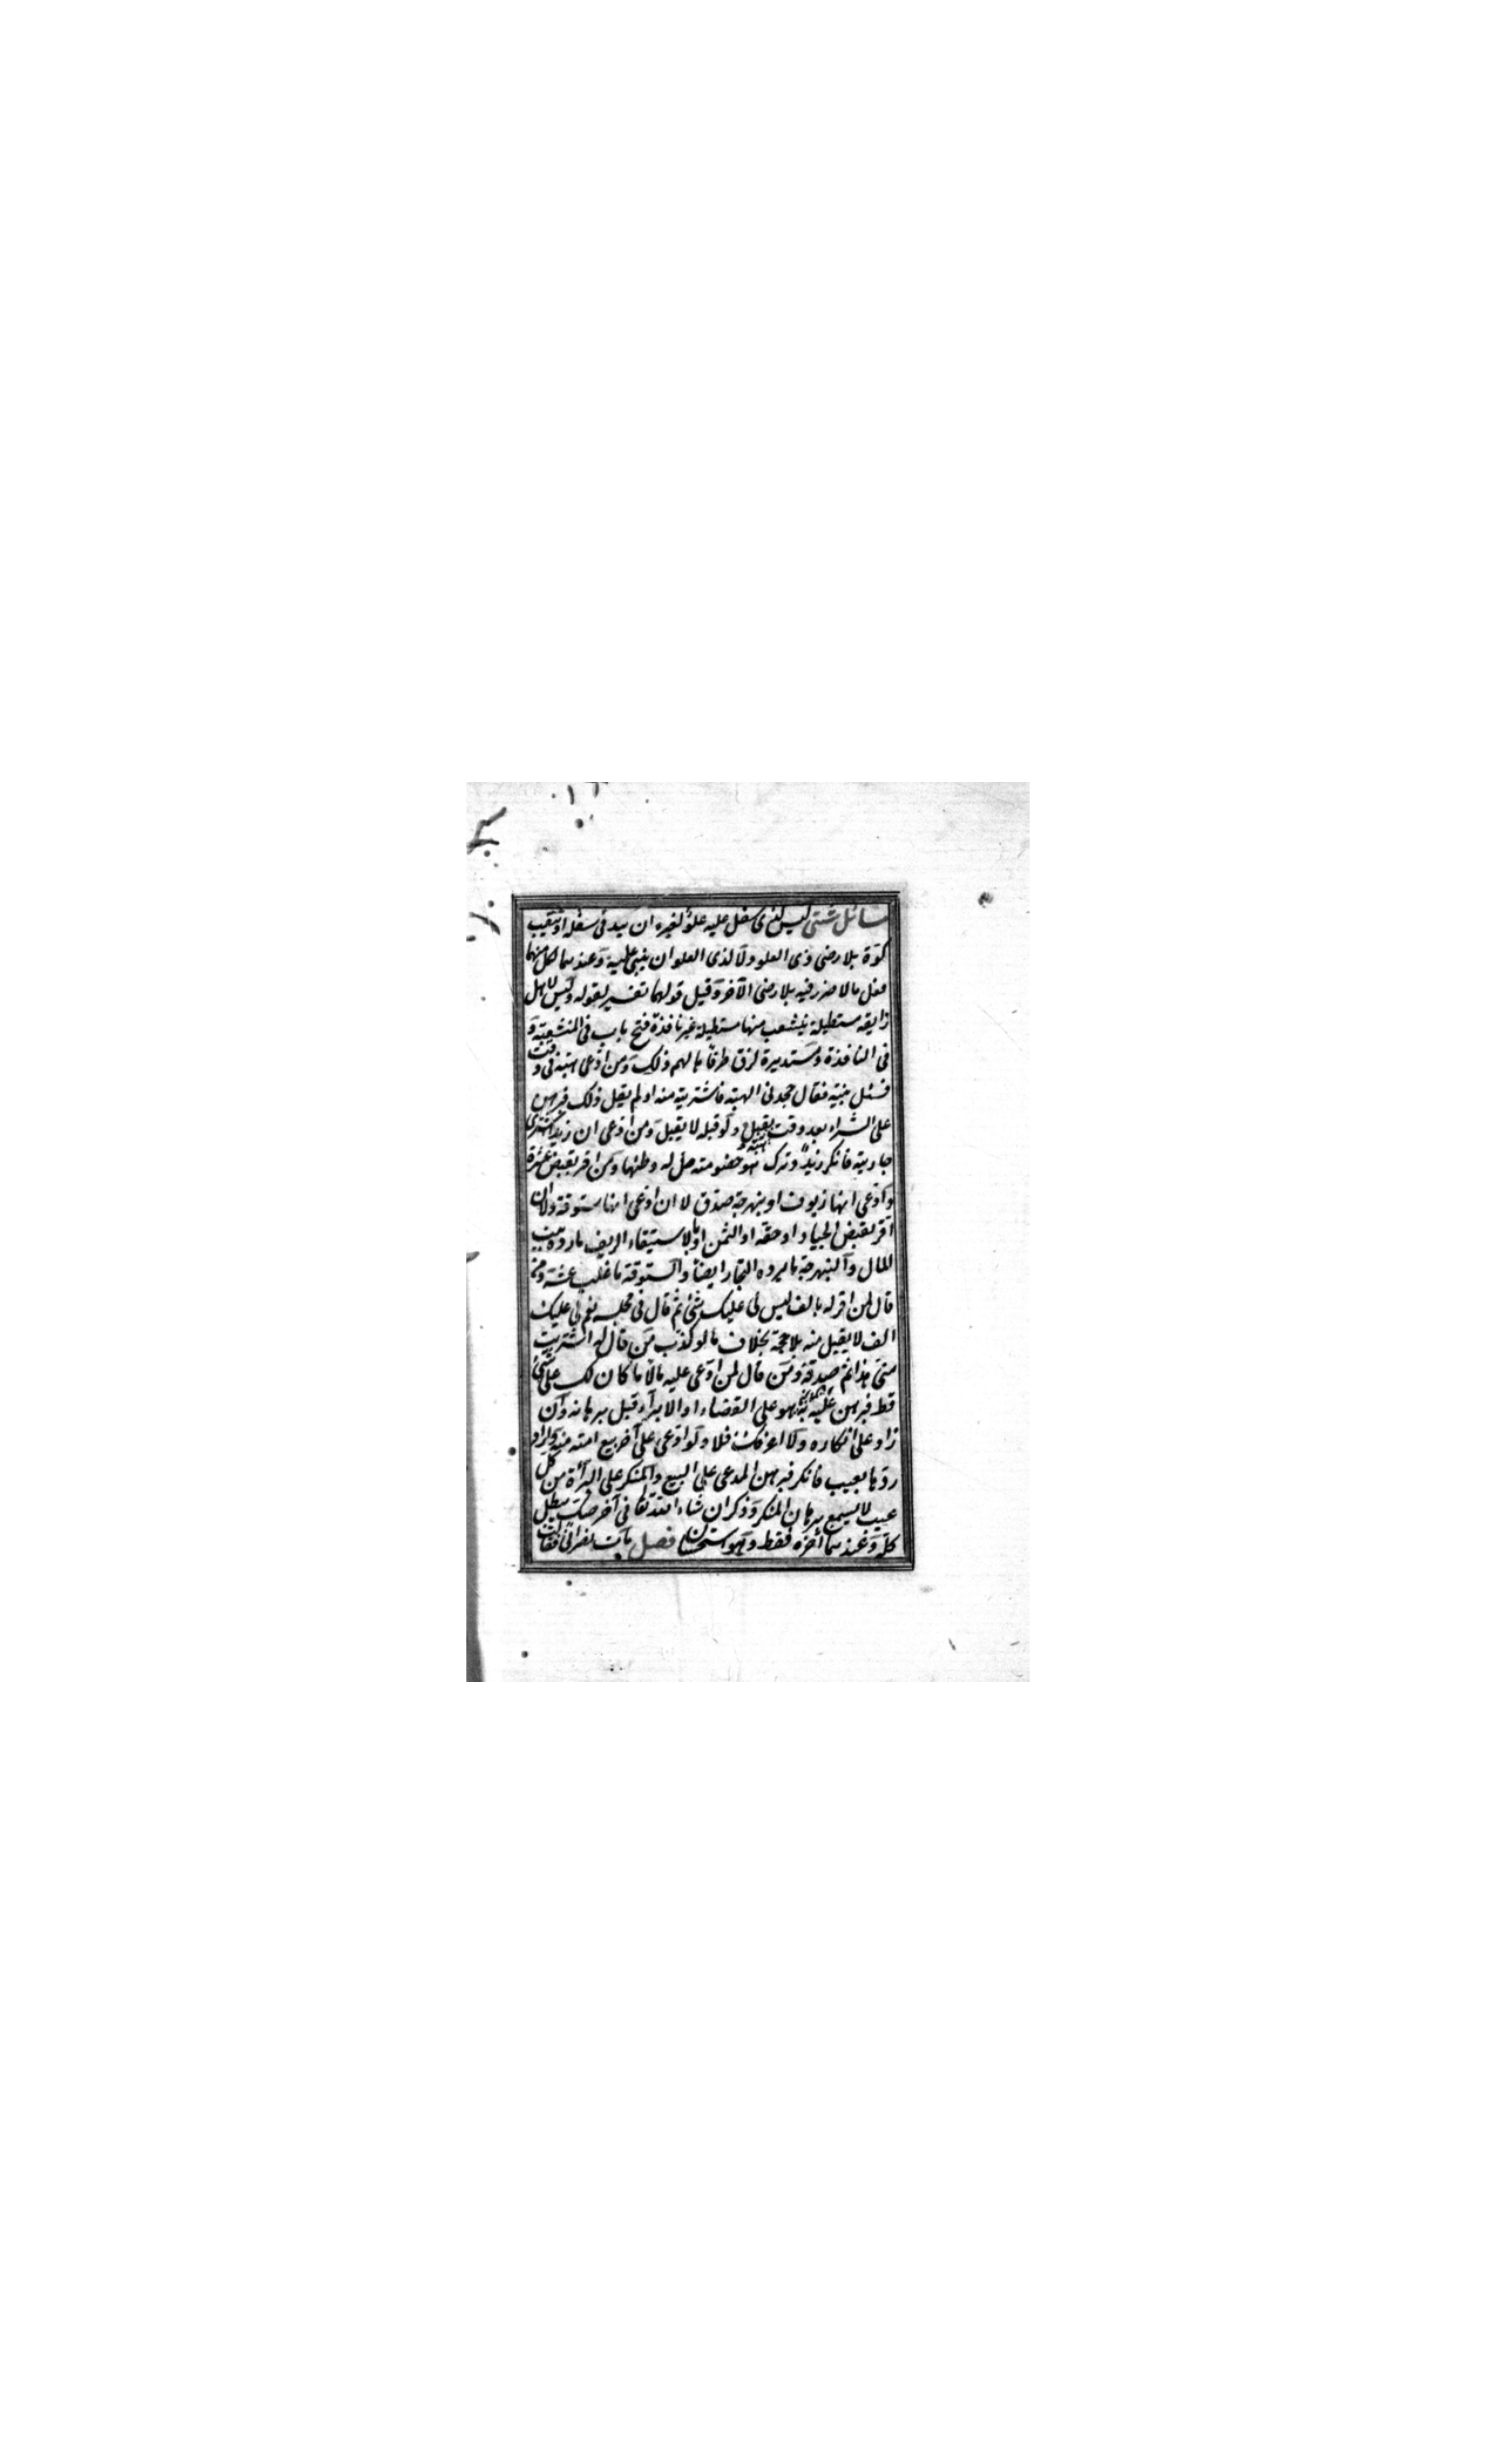 مسائل شتى ليس لذى سفل عليه علو لغيره ان يتد فى سفله او ينقب
كوة بلا رضى ذى العلو ولا لذى العلو ان يبنى عليه وعندهما لكل منهما
فعل ما لا ضرر فيه بلا رضى الآخر وقيل قولهما تفسير لقوله وليس لاهل
زايغة مستطيلة ينشعب منها مستطيلة غير نافذة فتح باب فى المنشعبة و
فى النافذة ومستديرة لزق طرفاها لهم ذلك ومن ادعى هبة فى وقت
فسئل بينة فقال جحدنى الهبة فاشتريته منه او لم يقل ذلك فبرهن
على الشراء بعد وقت الهبة يقبل ولو قبله لا يقبل ومن ادعى ان زيدا اشترى
جاريته فانكر زيد وترك هو خصومته حل له وطئها ومن اقر بقبض عشرة
وادعى انها زيوف او بنهرجة صدق لا ان ادعى انها ستوقة ولا ان
اقر بقبض الجياد او حقه او الثمن او بالاستيفاء الزيف ما رده بيت
المال والبنهرجة ما يرده التجار ايضا والستوقة ما غلب غشه ومن
قال لمن اقر له بالف ليس لى عليك شئ ثم قال فى مجلسه نعم لى عليك
الف لا يقبل منه بلا حجة بخلاف ما لو كذب من قال له اشتريت
منى هذا ثم صدقه ومن قال لمن ادعى عليه مالا ما كان لك على شئ
قط فبرهن عليه به وهو على القضاء او الابراء قبل برهانه وان
زاد على انكاره ولا اعرفك فلا ولو ادعى على آخر بيع امته منه واراد
ردها بعيب فانكر فبرهن المدعى على البيع والمنكر على البرأة من كل
عيب لا يسمع برهان المنكر وذكر ان شاء الله تعالى فى آخر صك يبطل
كله وعندهما آخره فقط وهو استحسان فصل مات نصرانى فقالت